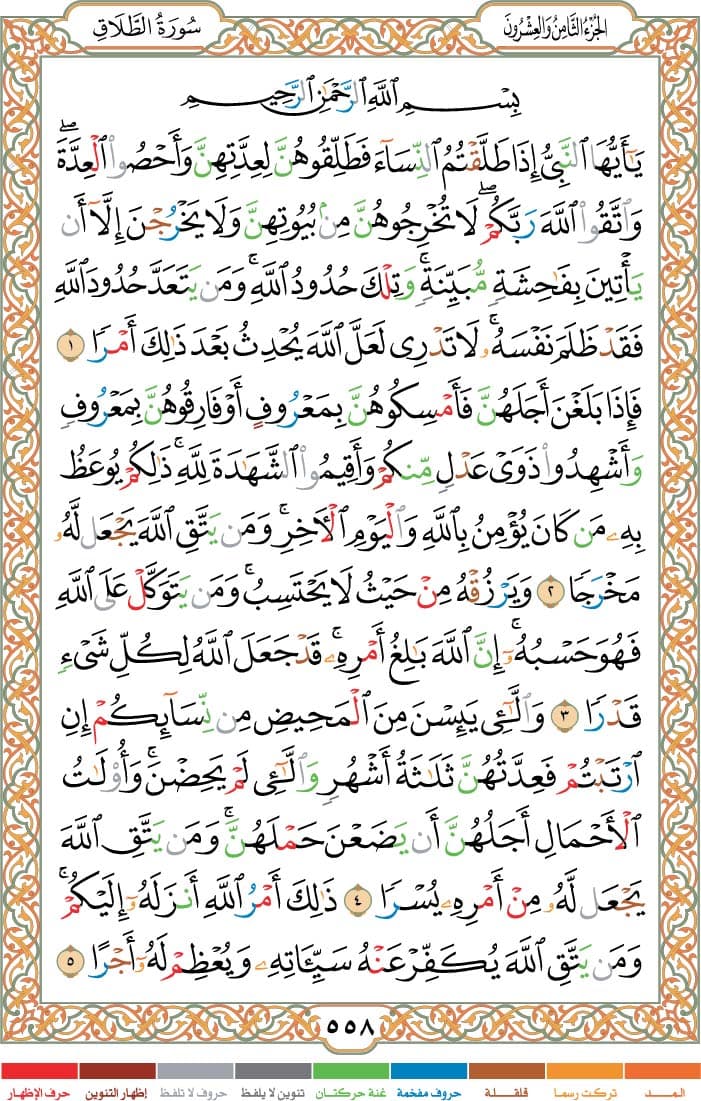 الجزء الثامن والعشرون
سورة الطلاق
بِسْمِ ٱللَّهِ ٱلرَّحْمَٰنِ ٱلرَّحِيمِ
يَٰٓأَيُّهَا ٱلنَّبِىُّ إِذَا طَلَّقْتُمُ ٱلنِّسَآءَ فَطَلِّقُوهُنَّ لِعِدَّتِهِنَّ وَأَحْصُوا۟ ٱلْعِدَّةَ ۖ
وَٱتَّقُوا۟ ٱللَّهَ رَبَّكُمْ ۖ لَا تُخْرِجُوهُنَّ مِنۢ بُيُوتِهِنَّ وَلَا يَخْرُجْنَ إِلَّآ أَن
يَأْتِينَ بِفَٰحِشَةٍ مُّبَيِّنَةٍ ۚ وَتِلْكَ حُدُودُ ٱللَّهِ ۚ وَمَن يَتَعَدَّ حُدُودَ ٱللَّهِ
فَقَدْ ظَلَمَ نَفْسَهُۥ ۚ لَا تَدْرِى لَعَلَّ ٱللَّهَ يُحْدِثُ بَعْدَ ذَٰلِكَ أَمْرًا ١
فَإِذَا بَلَغْنَ أَجَلَهُنَّ فَأَمْسِكُوهُنَّ بِمَعْرُوفٍ أَوْ فَارِقُوهُنَّ بِمَعْرُوفٍ
وَأَشْهِدُوا۟ ذَوَىْ عَدْلٍ مِّنكُمْ وَأَقِيمُوا۟ ٱلشَّهَٰدَةَ لِلَّهِ ۚ ذَٰلِكُمْ يُوعَظُ
بِهِۦ مَن كَانَ يُؤْمِنُ بِٱللَّهِ وَٱلْيَوْمِ ٱلْءَاخِرِ ۚ وَمَن يَتَّقِ ٱللَّهَ يَجْعَل لَّهُۥ
مَخْرَجًا ٢ وَيَرْزُقْهُ مِنْ حَيْثُ لَا يَحْتَسِبُ ۚ وَمَن يَتَوَكَّلْ عَلَى ٱللَّهِ
فَهُوَ حَسْبُهُۥٓ ۚ إِنَّ ٱللَّهَ بَٰلِغُ أَمْرِهِۦ ۚ قَدْ جَعَلَ ٱللَّهُ لِكُلِّ شَىْءٍ
قَدْرًا ٣ وَٱلَّٰٓـِٔى يَئِسْنَ مِنَ ٱلْمَحِيضِ مِن نِّسَآئِكُمْ إِنِ
ٱرْتَبْتُمْ فَعِدَّتُهُنَّ ثَلَٰثَةُ أَشْهُرٍ وَٱلَّٰٓـِٔى لَمْ يَحِضْنَ ۚ وَأُو۟لَٰتُ
ٱلْأَحْمَالِ أَجَلُهُنَّ أَن يَضَعْنَ حَمْلَهُنَّ ۚ وَمَن يَتَّقِ ٱللَّهَ
يَجْعَل لَّهُۥ مِنْ أَمْرِهِۦ يُسْرًا ٤ ذَٰلِكَ أَمْرُ ٱللَّهِ أَنزَلَهُۥٓ إِلَيْكُمْ ۚ
وَمَن يَتَّقِ ٱللَّهَ يُكَفِّرْ عَنْهُ سَيِّـَٔاتِهِۦ وَيُعْظِمْ لَهُۥٓ أَجْرًا ٥
٥٥٨
المــد تركت رسما قلقلة حروف مفخمة غنة حركتان تنوين لا يلفظ حروف لا تلفظ إظهار التنوين حرف الإظهار